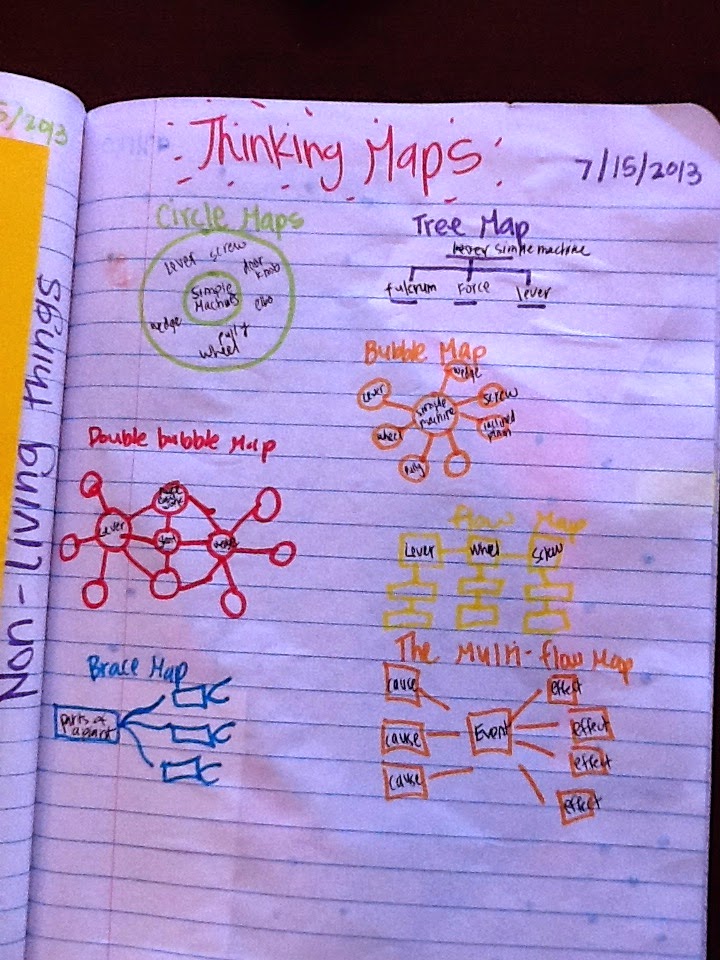 5/2013
Non-Living Things
Thinking Maps
7/15/2013
Circle Maps
Lever
screw
door
knob
Simple
Machines
wedge
pully
wheel
Tree Map
lever simple machine
fulcrum Force lever
Bubble Map
wedge
Lever
screw
simple
machine
wheel
inclined
pully
Double bubble Map
Lever
wedge
flow Map
Lever wheel screw
Brace Map
parts of
a plant
The Multi-flow Map
cause
effect
Event
effect
cause
effect
cause
effect